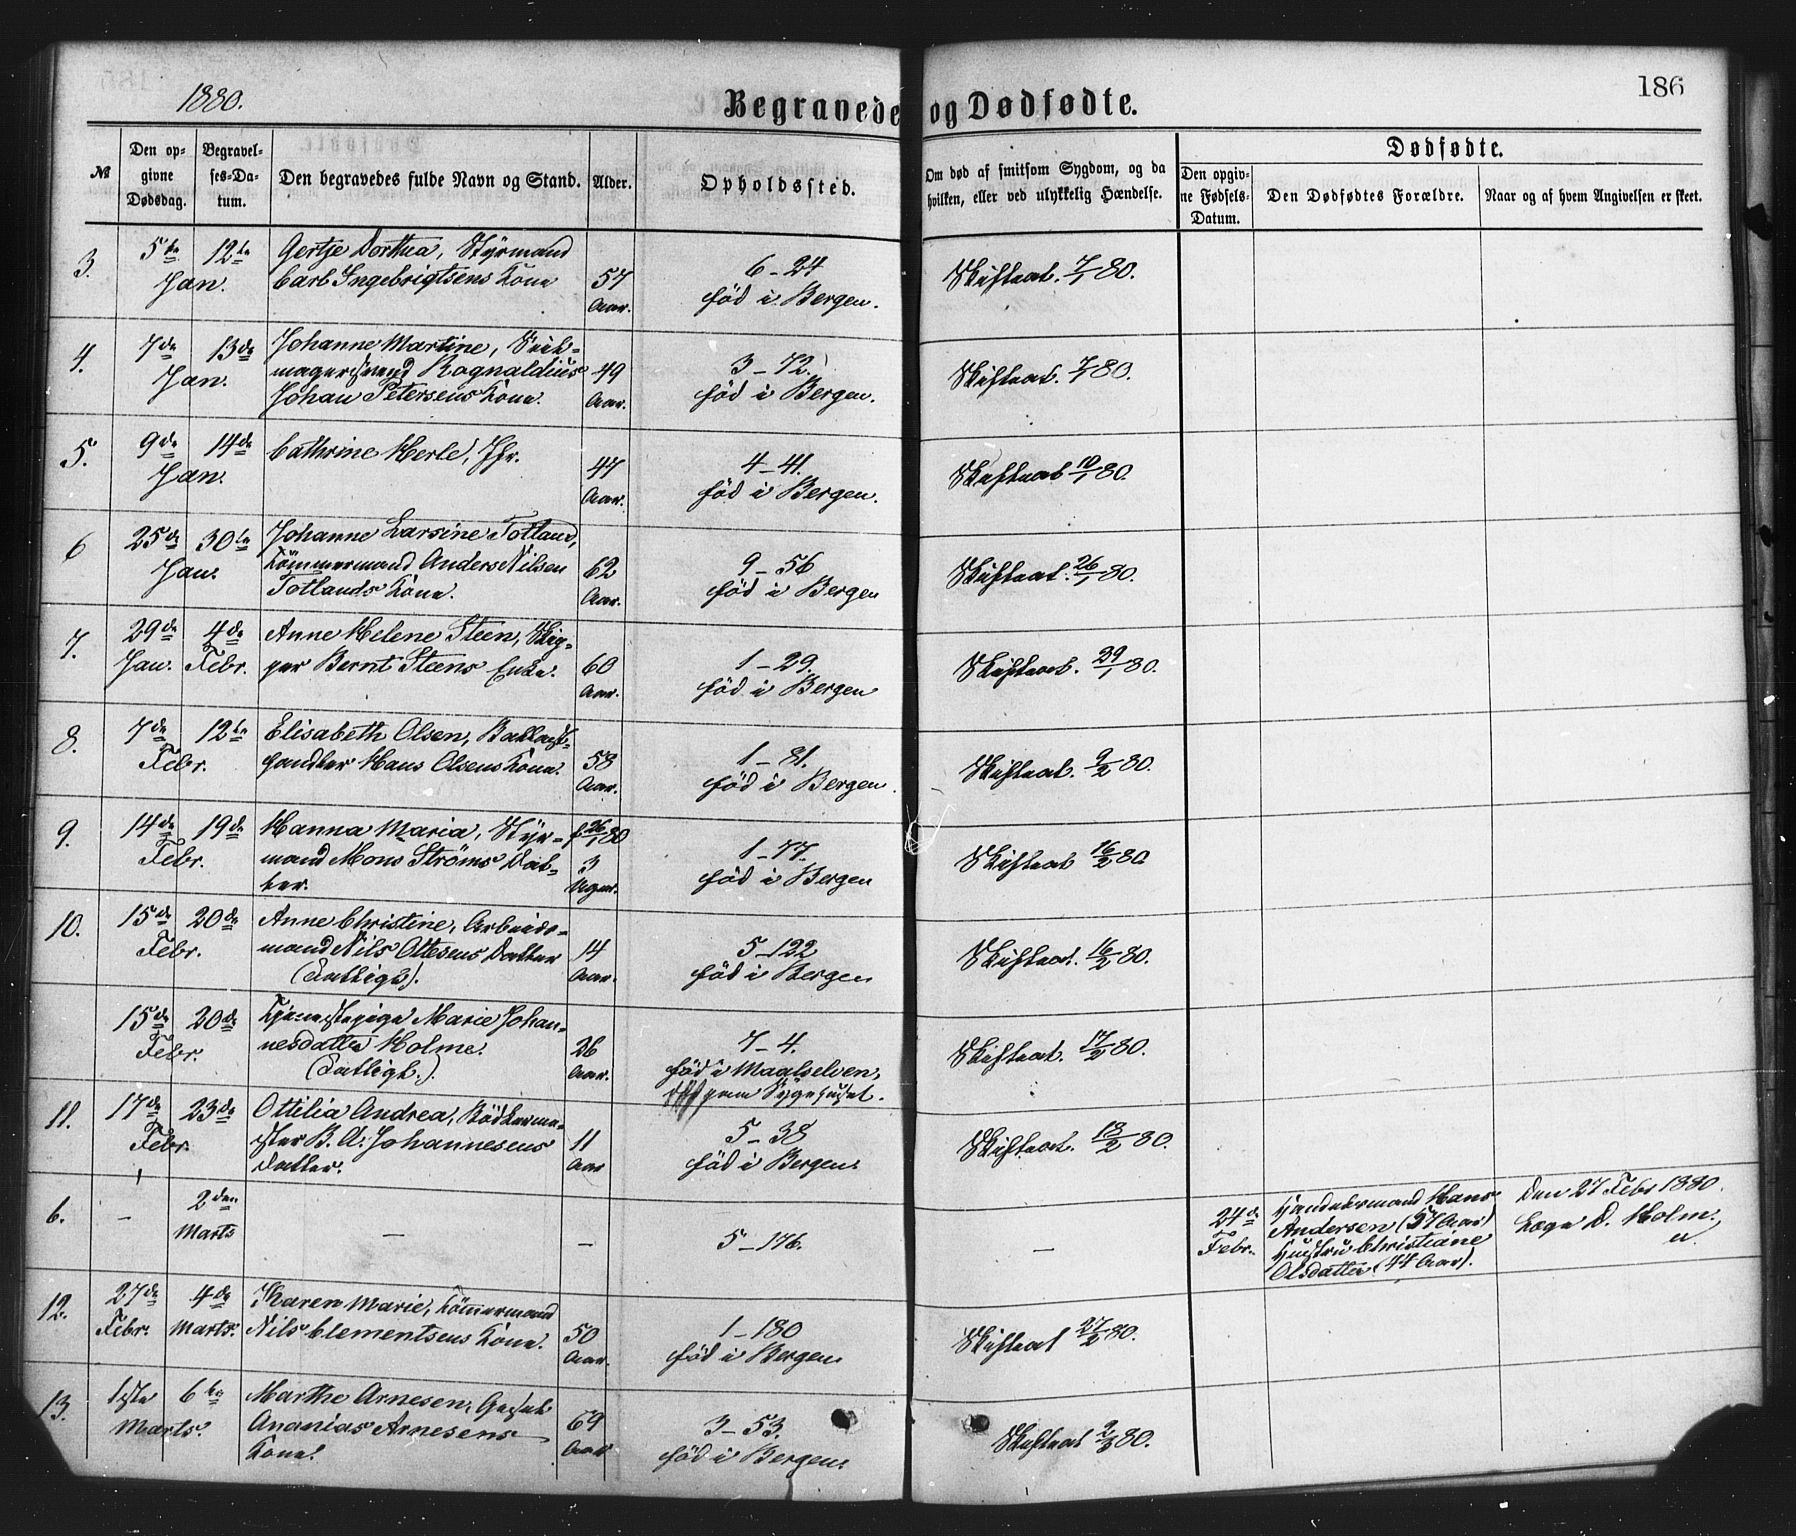 1880.
Begravede og Dødfødte.
186
№
Den opgivne Dødsdag.
Begravelses-Datum.
Den begravedes fulde Navn og Stand.
Alder.
Opholdssted.
Om død af smitsom Sygdom, og da hvilken, eller ved ulykkelig Hændelse.
Dødfødte.
Den opgivne Fødsels-Datum.
Den Dødfødtes Forældre.
Naar og af hvem Angivelsen er skeet.
3. 5te Jan. 12te
Gertje Dorthea, Styrmand
Carl Ingebrigtsens Kone
57 Aar.
6-24
fød i Bergen.
Skifteat. 7/1 80.
4. 7de Jan. 13de
Johanne Martine,
Ragnaldius
Johan Petersens Kone.
49 Aar.
3-72.
fød i Bergen.
Skifteat. 7/1 80.
5. 9de Jan. 14de
Cathrine Herle, Jfr.
47 Aar.
4-41.
fød i Bergen.
Skifteat 10/1 80.
6 25de Jan. 30te
Johanne Larsine Totland,
Tømmermand Anders Nilsen
Totlands Kone.
62 Aar.
9-56
fød i Bergen
Skifteat. 26/1 80.
7. 29de Jan. 4de Febr.
Anne Helene Steen, Skip-
per Bernt Steens Enke.
60 Aar.
1-29.
fød i Bergen
Skifteat. 29/1 80.
8. 7de Febr. 12te
Elisabeth Olsen, Ballast-
handler Hans Olsens Kone.
58 Aar.
1-81.
fød i Bergen.
Skifteat. 9/2 80.
9. 14de Febr. 19de
Hanna Maria, Styr-
mand Mons Strøms Dat-
ter.
f 26/1 80
3 Uger.
1-77.
fød i Bergen
Skifteat 16/2 80
10. 15de Febr. 20de
Anne Christine, Arbeids-
mand Nils Ottesens Datter
(Fattigl.).
14 Aar.
5-122
fød i Bergen
Skifteat. 16/2 80.
15de Febr. 20de
Tjenestepige Marie Johan-
nesdatter Holme.
(Fattigl.).
26 Aar.
7-4.
fød i Maalselven,
Sygehuset.
Skifteat. 17/2 80.
11. 17de Febr. 23de
Ottilia Andrea, Bødkerme-
ster B. A. Johannesens
Datter.
11 Aar
5-38
fød i Bergen.
Skifteat. 18/2 80.
6. – 2den Marts
–
–
5-176.
–
24de Febr.
Handelsmand Hans
Andersen (57 Aar)
Hustru Christiane
Olsdatter (44 Aar).
Den 27 Febr 1880.
Læge D. Holm.
12. 27de Febr. 4de Marts.
Karen Marie, Tømmermand
Nils Clementsens Kone.
50 Aar.
1-180
fød i Bergen
Skifteat 27/2 80.
13. 1ste Marts. 6te
Marthe Arnesen,
Ananias Arnesens
Kone.
69 Aar
3-53.
fød i Bergen.
Skifteat 2/3 80.